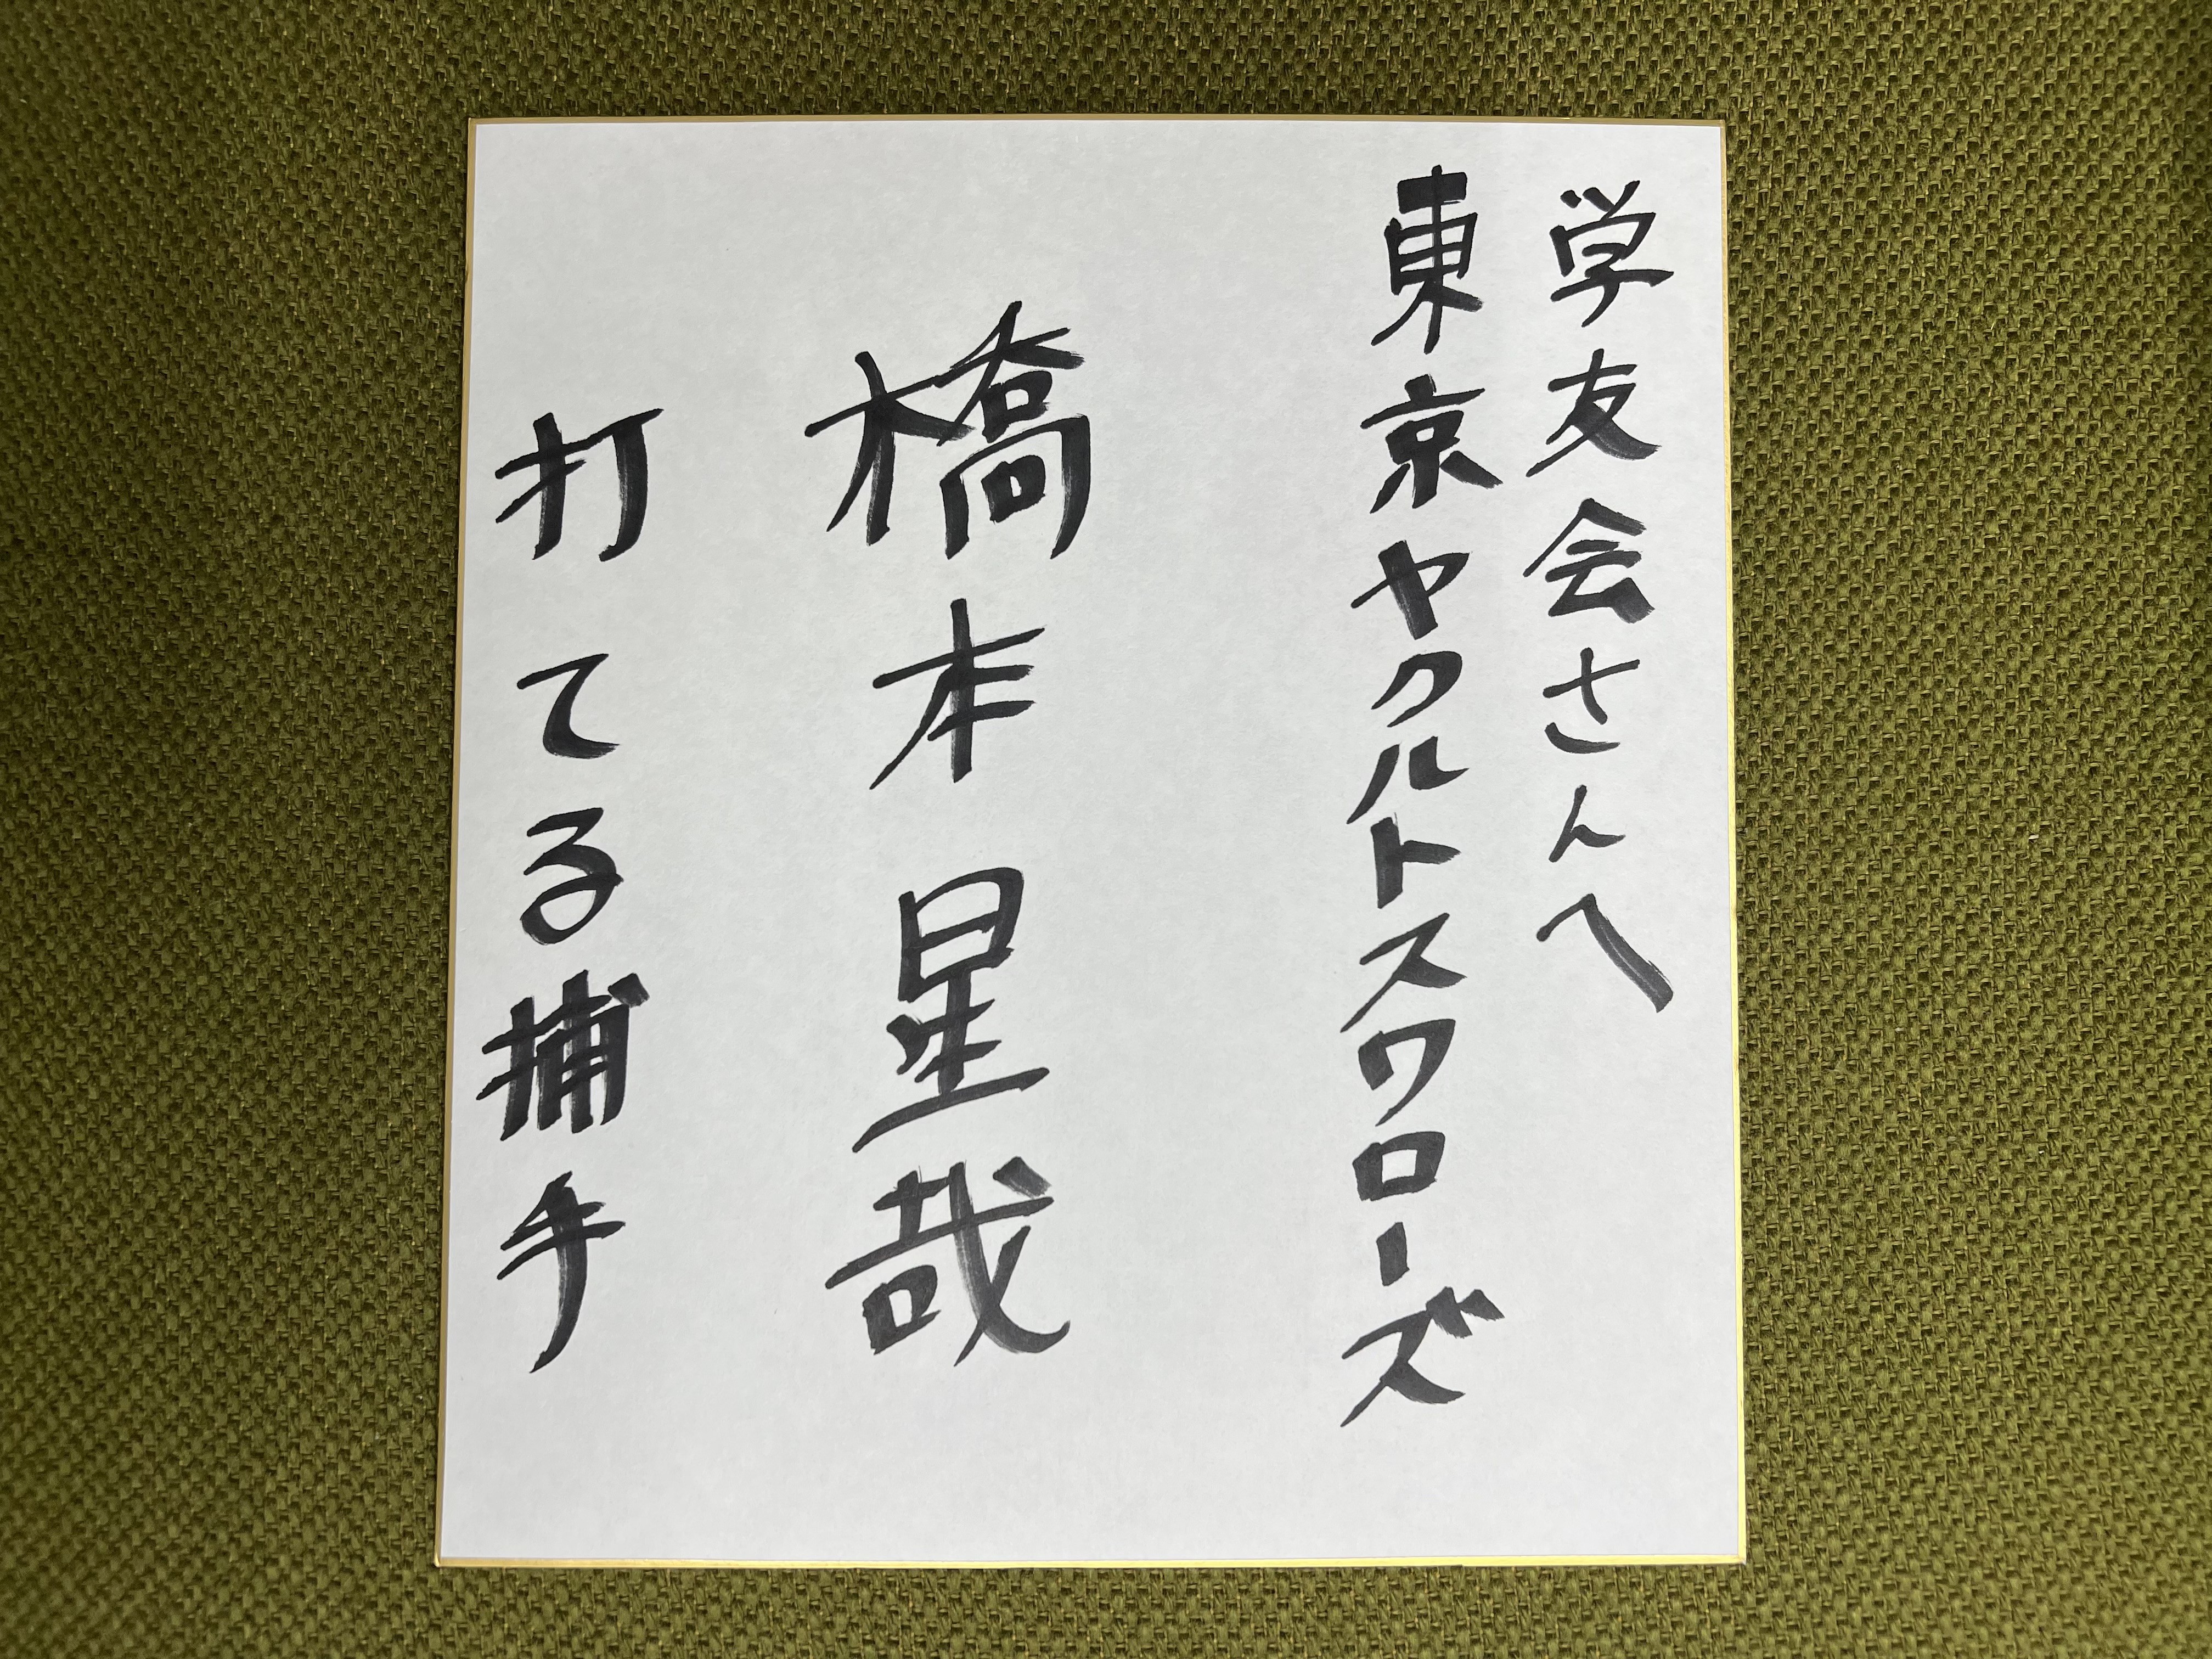 学友会さんへ
東京ヤクルトスワローズ
橋本星哉
打てる捕手